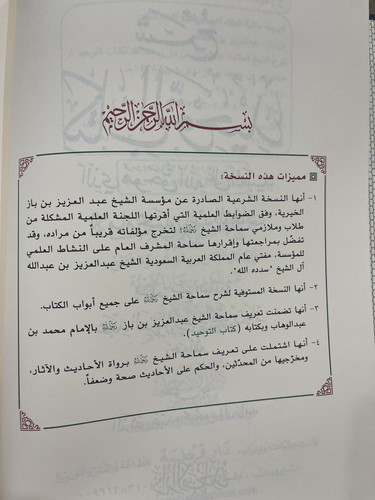 بسم الله الرحمن الرحيم
مميزات هذه النسخة:
١- أنها النسخة الشرعية الصادرة عن مؤسسة الشيخ عبد العزيز بن باز
الخيرية، وفق الضوابط العلمية التي أقرتها اللجنة العلمية المشكلة من
طلاب وملازمي سماحة الشيخ ﵀؛ لتخرج مؤلفاته قريباً من مراده، وقد
تفضَّل بمراجعتها وإقرارها سماحة المشرف العام على النشاط العلمي
للمؤسسة، مفتي عام المملكة العربية السعودية الشيخ عبدالعزيز بن عبدالله
آل الشيخ "سدده الله".
٢- أنها النسخة المستوفية لشرح سماحة الشيخ ﵀ على جميع أبواب الكتاب.
٣- أنها تضمنت تعريف سماحة الشيخ عبدالعزيز بن باز ﵀ بالإمام محمد بن
عبدالوهاب وبكتابه (كتاب التوحيد).
٤- أنها اشتملت على تعريف سماحة الشيخ ﵀ برواة الأحاديث والآثار،
ومخرّجيها من المحدّثين، والحكم على الأحاديث صحة وضعفاً.